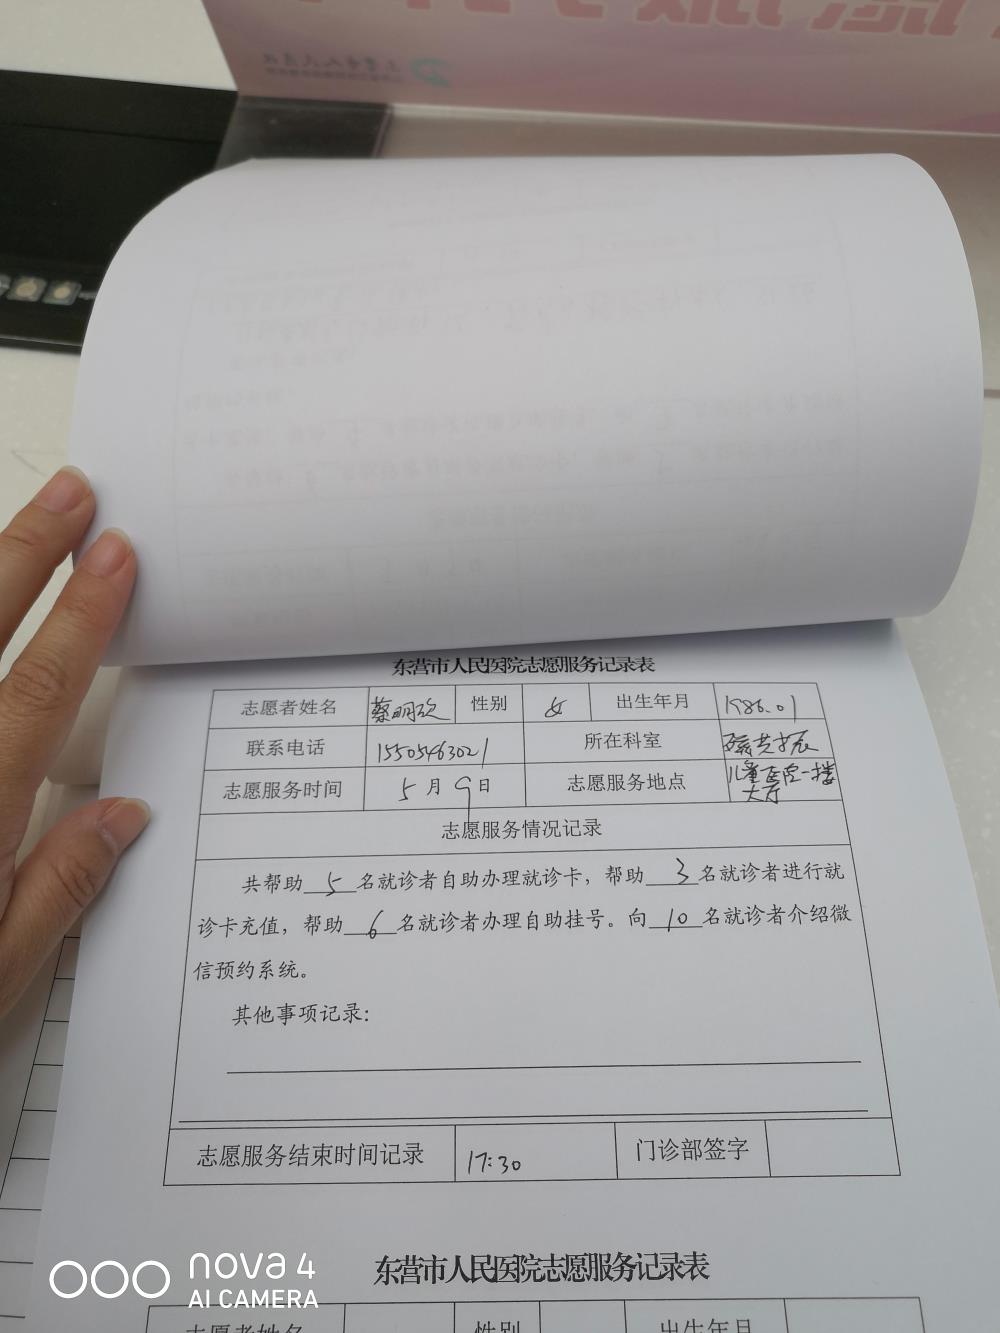 东营市人民医院志愿服务记录表
志愿者姓名 蔡明欣 性别 女 出生年月 1986.01
联系电话 15505463021 所在科室 磁共振
志愿服务时间 5月9日 志愿服务地点 儿童医院一楼大厅
志愿服务情况记录
共帮助5名就诊者自助办理就诊卡，帮助3名就诊者进行就
诊卡充值，帮助6名就诊者办理自助挂号。向10名就诊者介绍微
信预约系统。
其他事项记录：
志愿服务结束时间记录 17:30 门诊部签字
东营市人民医院志愿服务记录表
志愿者姓名 性别 出生年月
nova 4
AI CAMERA